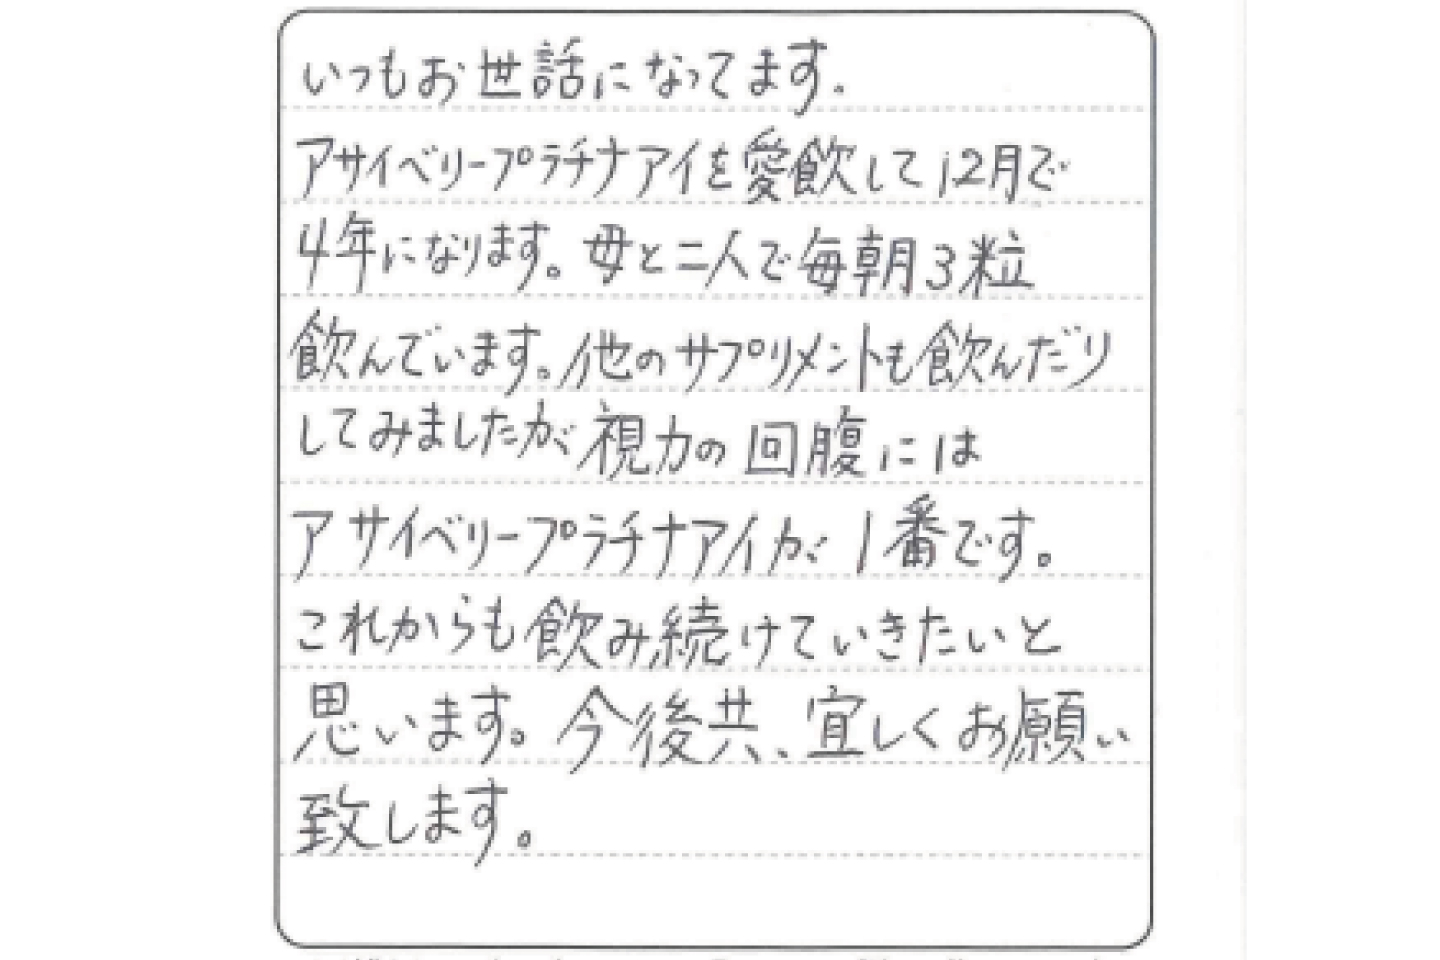 いつもお世話になってます.
アサイベリープラチナアイを愛飲して12月で
4年になります。母と二人で毎朝3粒
飲んでいます。他のサプリメントも飲んだり
してみましたが視力の回腹には
アサイベリープラチナアイが1番です。
これからも飲み続けていきたいと
思います。今後共、宜しくお願い
致します。